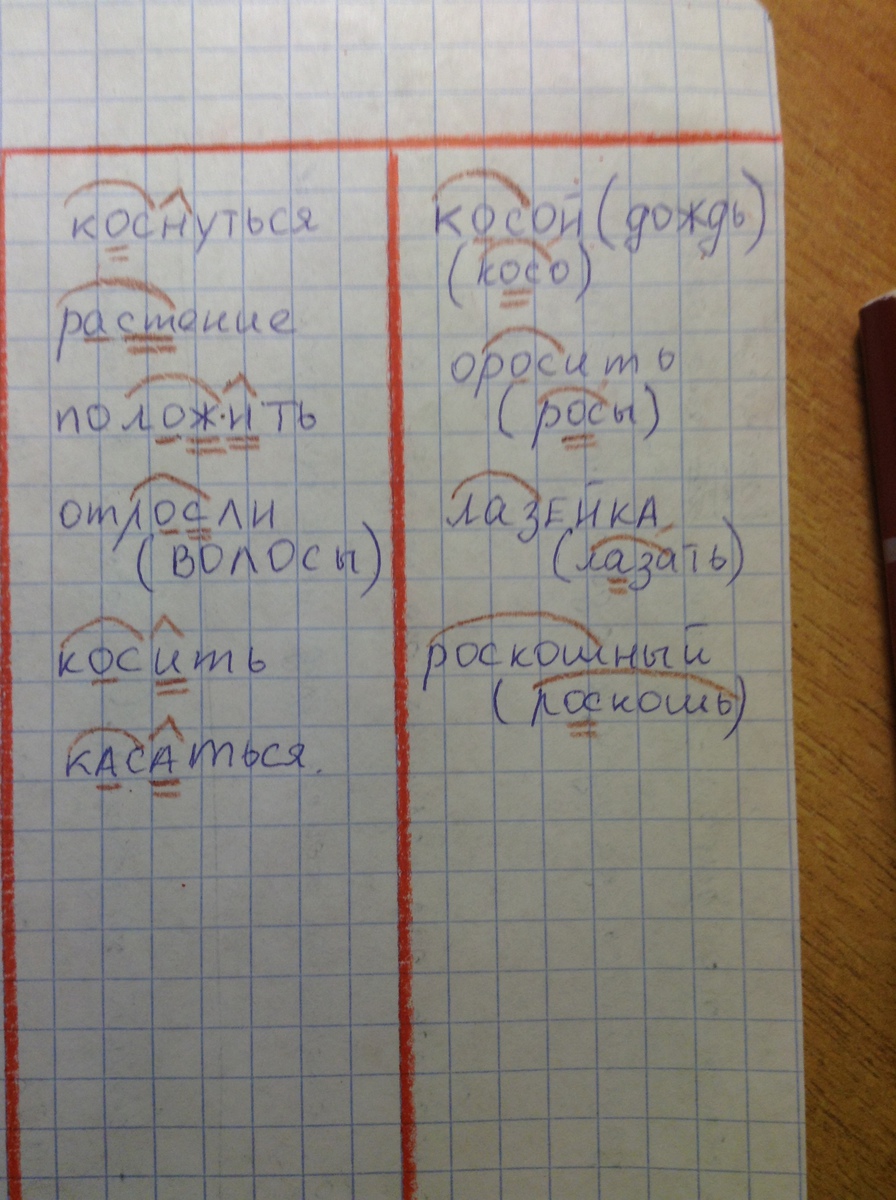 коснуться
растение
положить
отросли
(волосы)
косить
касаться.
косой (дождь)
(косо)
оросить
(росы)
лазейка
(лазать)
роскошный
(роскошь)